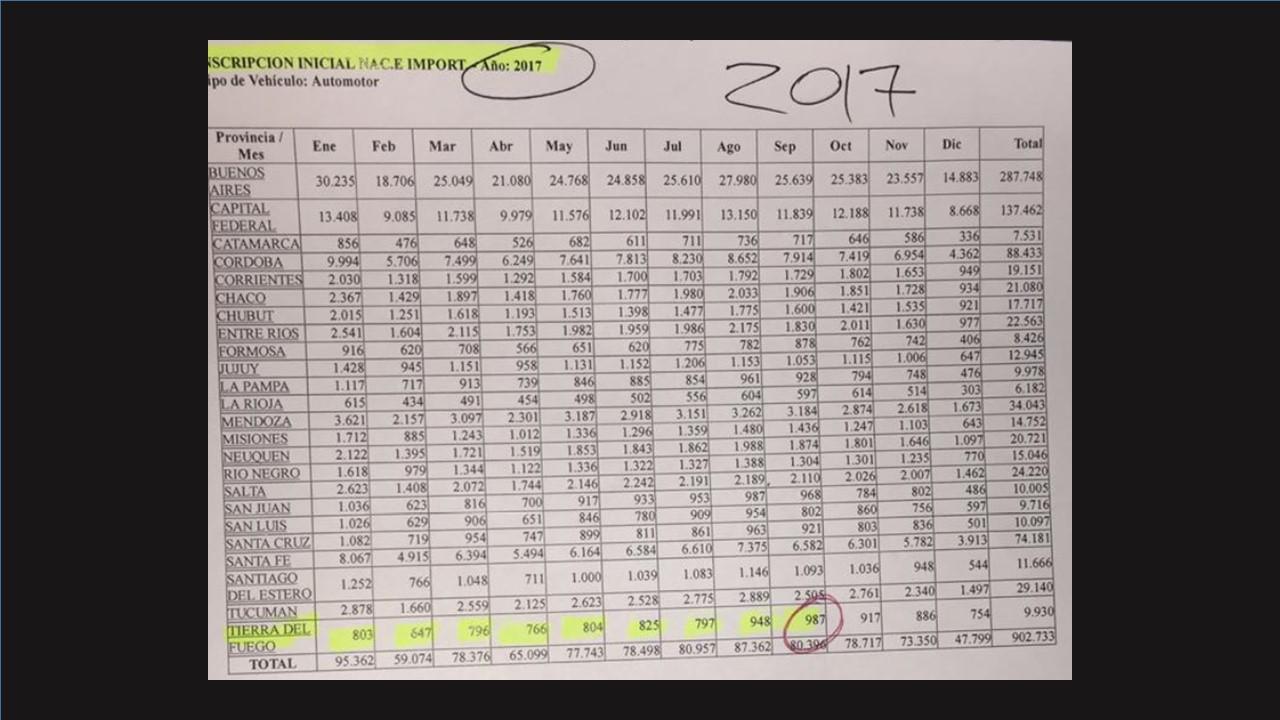 NSCRIPCION INICIAL NAC.E IMPORT - Año: 2017
ipo de Vehículo: Automotor
2017
Provincia / Mes Ene Feb Mar Abr May Jun Jul Ago Sep Oct Nov Dic Total
BUENOS AIRES 30.235 18.706 25.049 21.080 24.768 24.858 25.610 27.980 25.639 25.383 23.557 14.883 287.748
CAPITAL FEDERAL 13.408 9.085 11.738 9.979 11.576 12.102 11.991 13.150 11.839 12.188 11.738 8.668 137.462
CATAMARCA 856 476 648 526 682 611 711 736 717 646 586 336 7.531
CORDOBA 9.994 5.706 7.499 6.249 7.641 7.813 8.230 8.652 7.914 7.419 6.954 4.362 88.433
CORRIENTES 2.030 1.318 1.599 1.292 1.584 1.700 1.703 1.792 1.729 1.802 1.653 949 19.151
CHACO 2.367 1.429 1.897 1.418 1.760 1.777 1.980 2.033 1.906 1.851 1.728 934 21.080
CHUBUT 2.015 1.251 1.618 1.193 1.513 1.398 1.477 1.775 1.600 1.421 1.535 921 17.717
ENTRE RIOS 2.541 1.604 2.115 1.753 1.982 1.959 1.986 2.175 1.830 2.011 1.630 977 22.563
FORMOSA 916 620 708 566 651 620 775 782 878 762 742 406 8.426
JUJUY 1.428 945 1.151 958 1.131 1.152 1.206 1.153 1.053 1.115 1.006 647 12.945
LA PAMPA 1.117 717 913 739 846 885 854 961 928 794 748 476 9.978
LA RIOJA 615 434 491 454 498 502 556 604 597 614 514 303 6.182
MENDOZA 3.621 2.157 3.097 2.301 3.187 2.918 3.151 3.262 3.184 2.874 2.618 1.673 34.043
MISIONES 1.712 885 1.243 1.012 1.336 1.296 1.359 1.480 1.436 1.247 1.103 643 14.752
NEUQUEN 2.122 1.395 1.721 1.519 1.853 1.843 1.862 1.988 1.874 1.801 1.646 1.097 20.721
RIO NEGRO 1.618 979 1.344 1.122 1.336 1.322 1.327 1.388 1.304 1.301 1.235 770 15.046
SALTA 2.623 1.408 2.072 1.744 2.146 2.242 2.191 2.189 2.110 2.026 2.007 1.462 24.220
SAN JUAN 1.036 623 816 700 917 933 953 987 968 784 802 486 10.005
SAN LUIS 1.026 629 906 651 846 780 909 954 802 860 756 597 9.716
SANTA CRUZ 1.082 719 954 747 899 811 861 963 921 803 836 501 10.097
SANTA FE 8.067 4.915 6.394 5.494 6.164 6.584 6.610 7.375 6.582 6.301 5.782 3.913 74.181
SANTIAGO DEL ESTERO 1.252 766 1.048 711 1.000 1.039 1.083 1.146 1.093 1.036 948 544 11.666
TUCUMAN 2.878 1.660 2.559 2.125 2.623 2.528 2.775 2.889 2.505 2.761 2.340 1.497 29.140
TIERRA DEL FUEGO 803 647 796 766 804 825 797 948 987 917 886 754 9.930
TOTAL 95.362 59.074 78.376 65.099 77.743 78.498 80.957 87.362 80.396 78.717 73.350 47.799 902.733